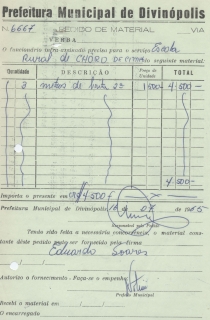 Prefeitura Municipal de Divinópolis
N. 6667 PEDIDO DE MATERIAL VIA
VERBA
O funcionário infra-assinado precisa para o serviço Escola
Rural de CHORO o seguinte material:
Quantidade DESCRIÇÃO Preço da Unidade TOTAL
3 1500 4.500
4.500
Importa o presente em 4.500
Prefeitura Municipal de Divinópolis, de 07 de 1965
Responsável pelo Pedido
Tendo sido feita a necessária concorrência, o material cons-
tante deste pedido pode ser fornecido pela firma
Eduardo Soares
Autorizo o fornecimento. Faça-se o empenho
Prefeito Municipal
Recebi o material em de de
O encarregado